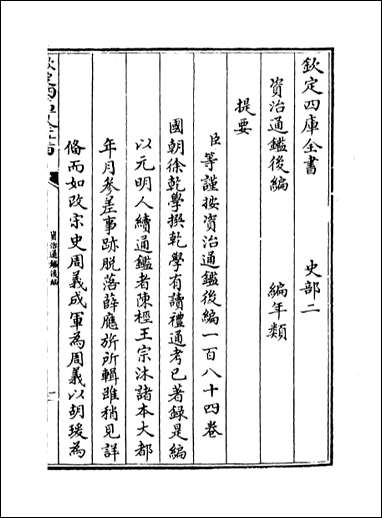 欽定四庫全書　史部二
資治通鑑後編　編年類
提要
臣等謹按資治通鑑後編一百八十四卷
國朝徐乾學撰乾學有讀禮通考已著錄是編
以元明人續通鑑者陳桱王宗沐諸本大都
年月參差事跡脫落薛應旂所輯雖稍見詳
備而如改宋史周義成軍為周義以胡瑗為
資治通鑑後編